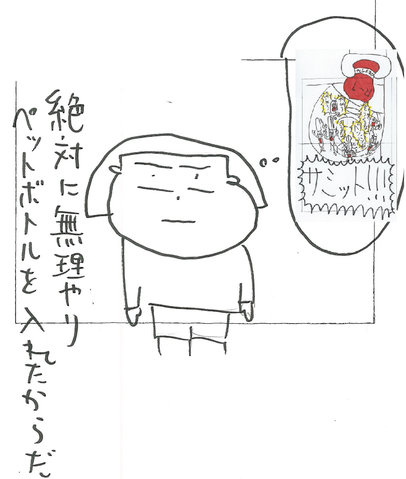 サミット!!!
絶対に無理やり
ペットボトルを入れたからだ